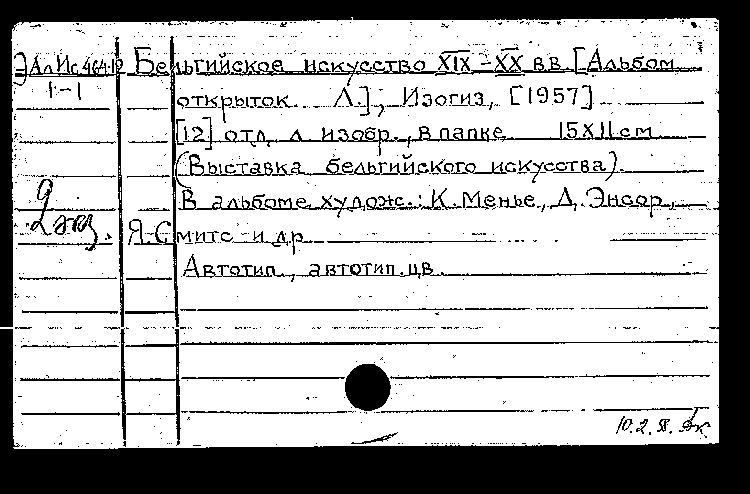 ЭАлИс464.12 Бельгийское искусство XIX–XX вв. [Альбом
1-1
открыток. Л.], Изогиз, [1957]
[12] отд. л. изобр., в папке 15х11см
(Выставка бельгийского искусства).
В альбоме худож.: К. Менье, Д. Энсор,
2 экз.
Я. Смитс и др.
Автотип., автотип. цв.
10.2.58.